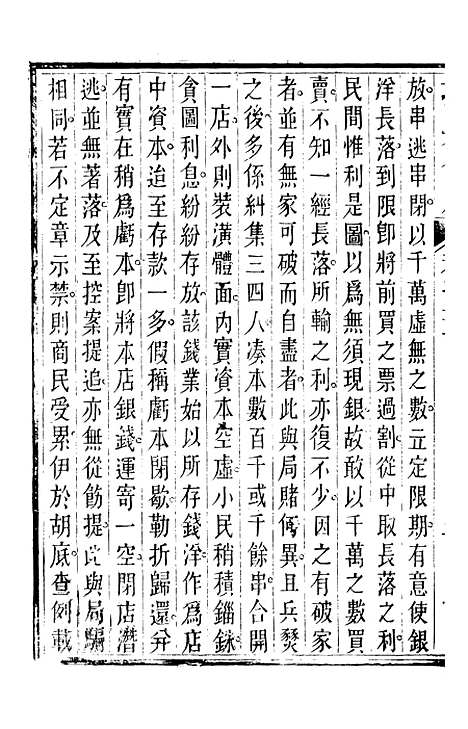 放串逃串閉以千萬虛無之數立定限期有意使銀
洋長落到限卽將前買之票過割從中取長落之利
民間惟利是圖以爲無須現銀故敢以千萬之數買
賣不知一經長落所輸之利亦復不少因之有破家
者並有無家可破而自盡者此與局賭何異且兵燹
之後多係糾集三四人凑本數百千或千餘串合開
一店外則裝潢體面内實資本空虛小民稍積錙銖
貪圖利息紛紛存放該錢業始以所存錢洋作爲店
中資本迨至存款一多假稱虧本閉歇勒折歸還㳂
有實在稍爲虧本卽將本店銀錢運寄一空閉店潛
逃並無著落及至控案提追亦無從飭提此與局騙
相同若不定章示禁則商民受累伊於胡底查例載